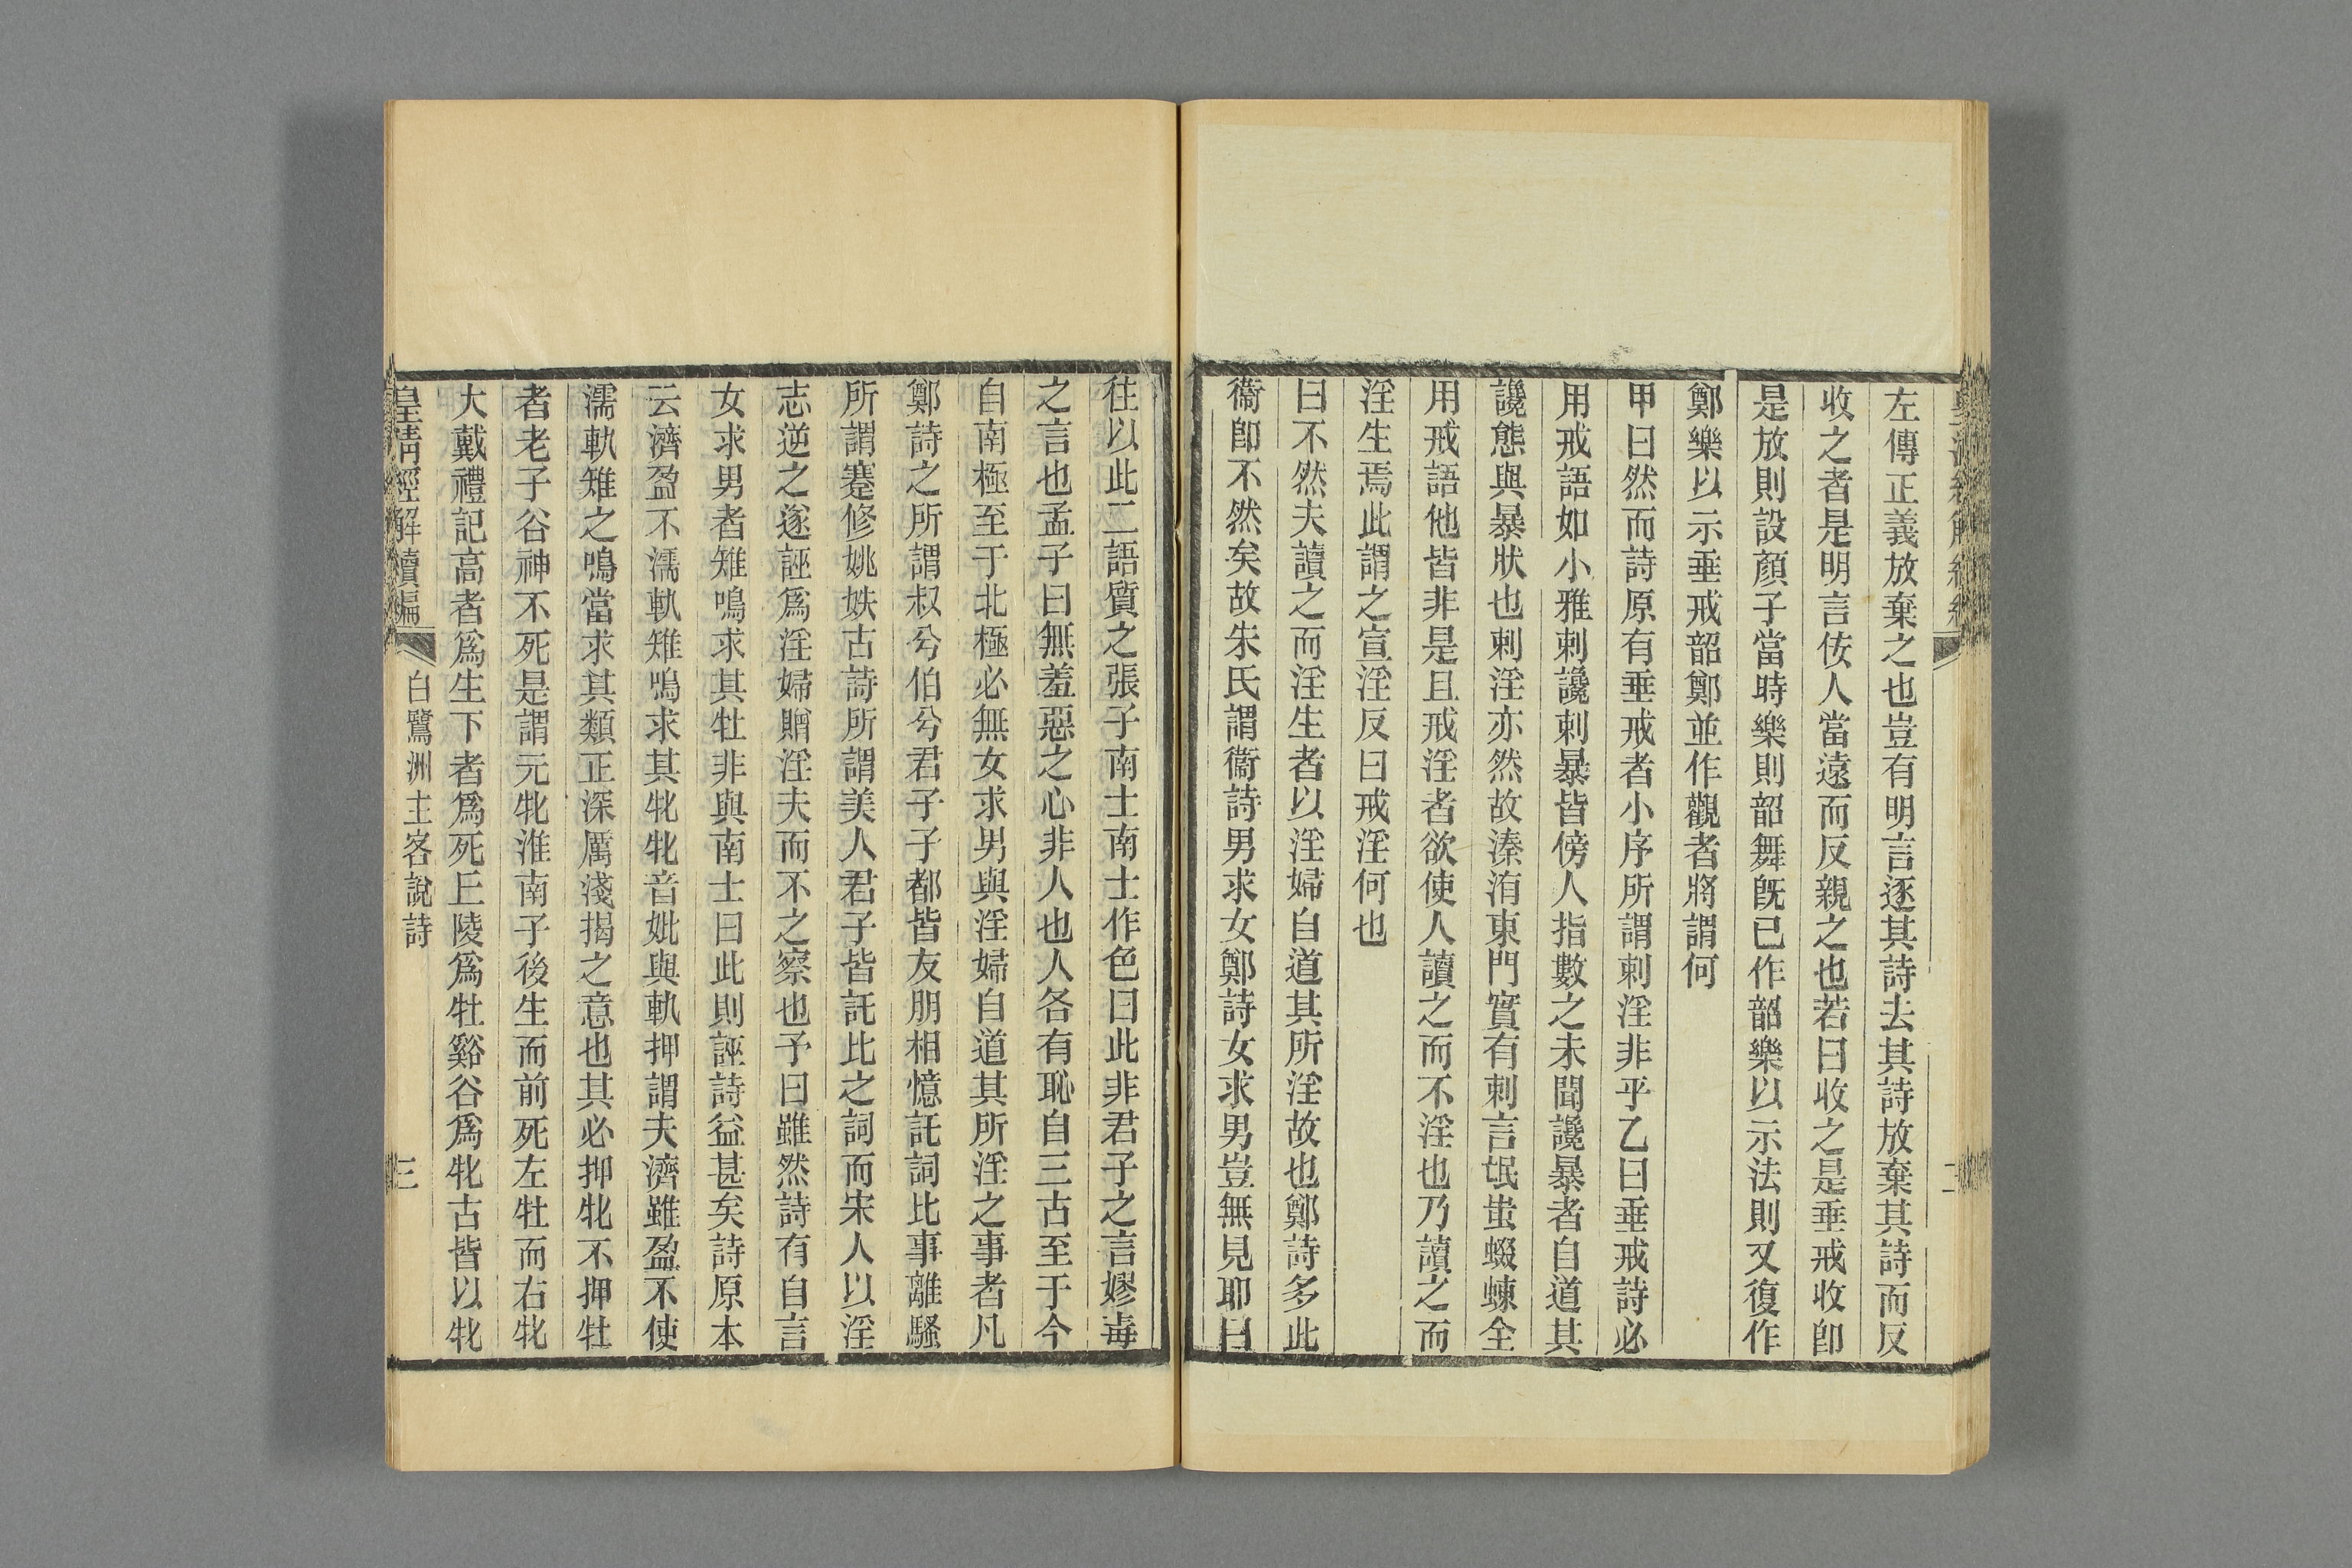 左傳正義放棄之也豈有明言逐其詩去其詩放棄其詩而反
收之者是明言佞人當遠而反親之也若曰收之是垂戒收卽
是放則設顏子當時樂則韶舞旣已作韶樂以示法則又復作
鄭樂以示垂戒韶鄭並作觀者將謂何
甲曰然而詩原有垂戒者小序所謂刺淫非乎乙曰垂戒詩必
用戒語如小雅刺讒刺暴皆傍人指數之未聞讒暴者自道其
讒態與暴狀也刺淫亦然故溱洧東門實有刺言氓蚩蝃蝀全
用戒語他皆非是且戒淫者欲使人讀之而不淫也乃讀之而
淫生焉此謂之宣淫反曰戒淫何也
曰不然夫讀之而淫生者以淫婦自道其所淫故也鄭詩多此
衞卽不然矣故朱氏謂衞詩男求女鄭詩女求男豈無見耶曰
往以此二語質之張子南士南士作色曰此非君子之言嫪毐
之言也孟子曰無羞惡之心非人也人各有恥自三古至于今
自南極至于北極必無女求男與淫婦自道其所淫之事者凡
鄭詩之所謂叔兮伯兮君子子都皆友朋相憶託詞比事離騷
所謂蹇修姚妷古詩所謂美人君子皆託比之詞而宋人以淫
志逆之遂誣爲淫婦贈淫夫而不之察也予曰雖然詩有自言
女求男者雉鳴求其牡非與南士曰此則誣詩益甚矣詩原本
云濟盈不濡軌雉鳴求其牝牝音妣與軌押謂夫濟雖盈不使
濡軌雉之鳴當求其類正深厲淺揭之意也其必抑牝不押牡
者老子谷神不死是謂元牝淮南子後生而前死左牡而右牝
大戴禮記高者爲生下者爲死丘陵爲牡谿谷爲牝古皆以牝
皇淸經解續編 白鷺洲主客說詩 三